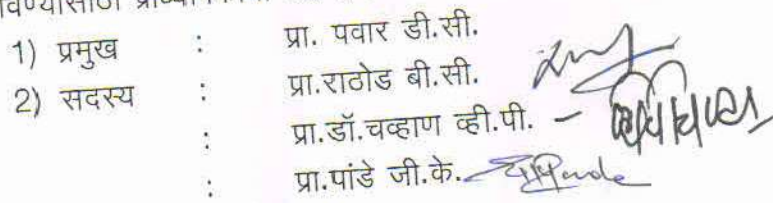 1) प्रमुख : प्रा. पवार डी.सी.
2) सदस्य : प्रा.राठोड बी.सी.
: प्रा.डॉ.चव्हाण व्ही.पी. –
: प्रा.पांडे जी.के.